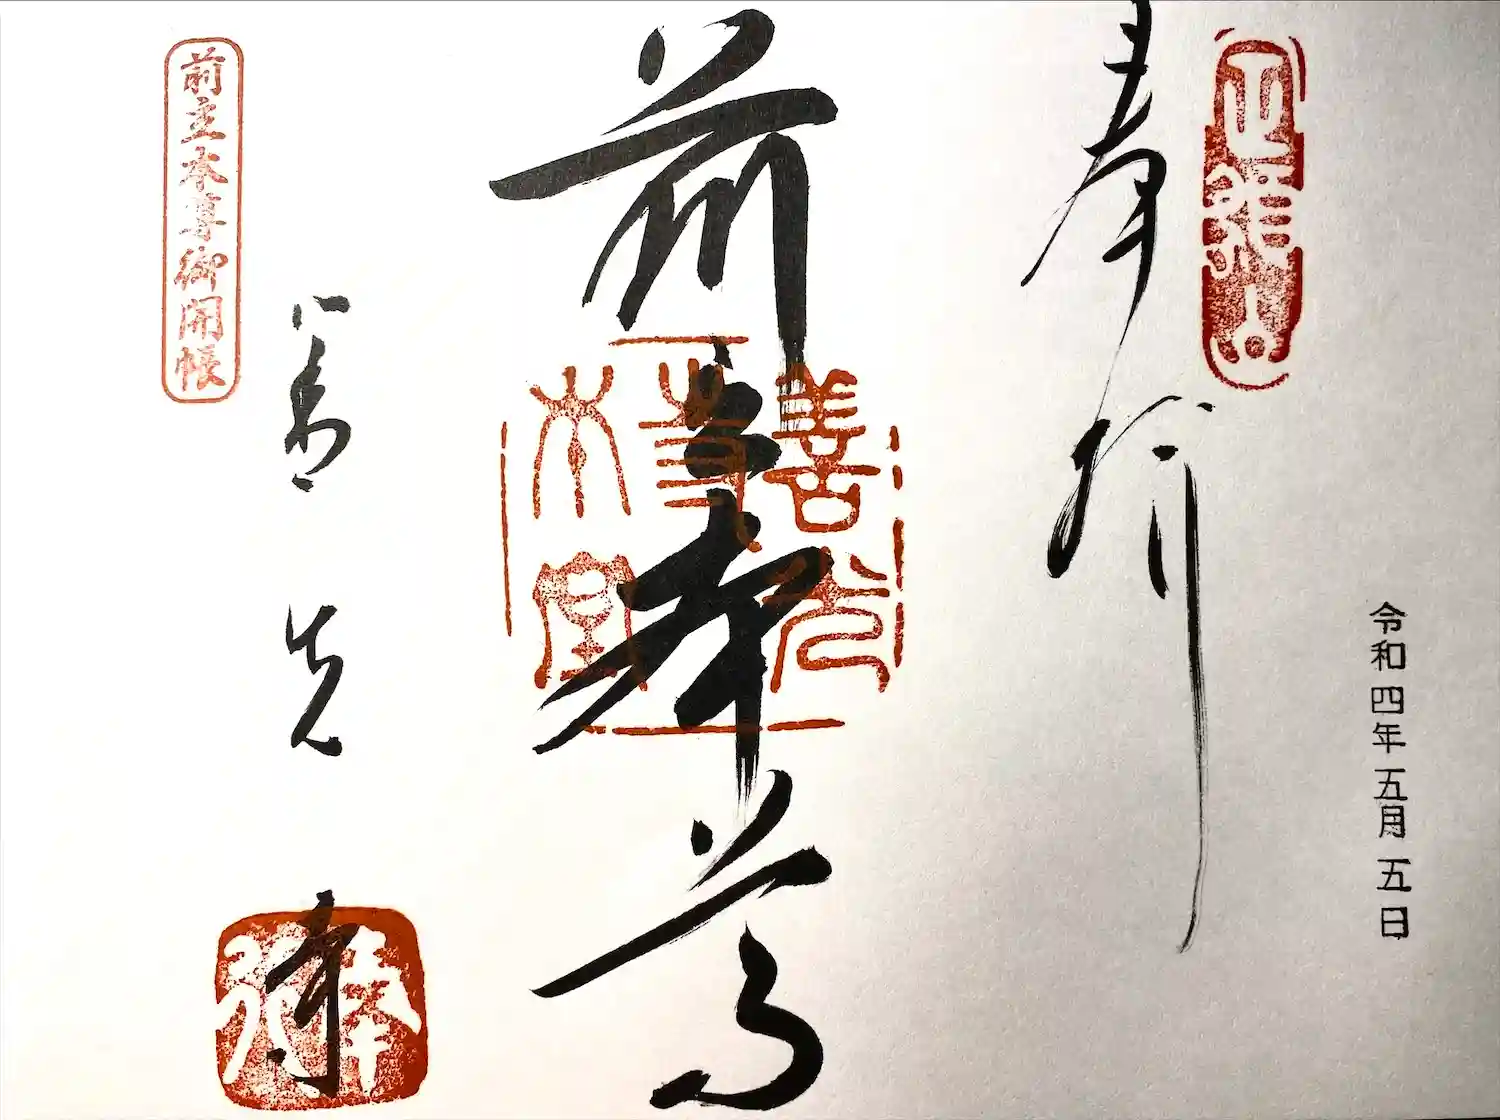 奉行
令和四年五月五日
前立本尊
善光寺本堂
前立本尊御開帳
善光寺
奉行